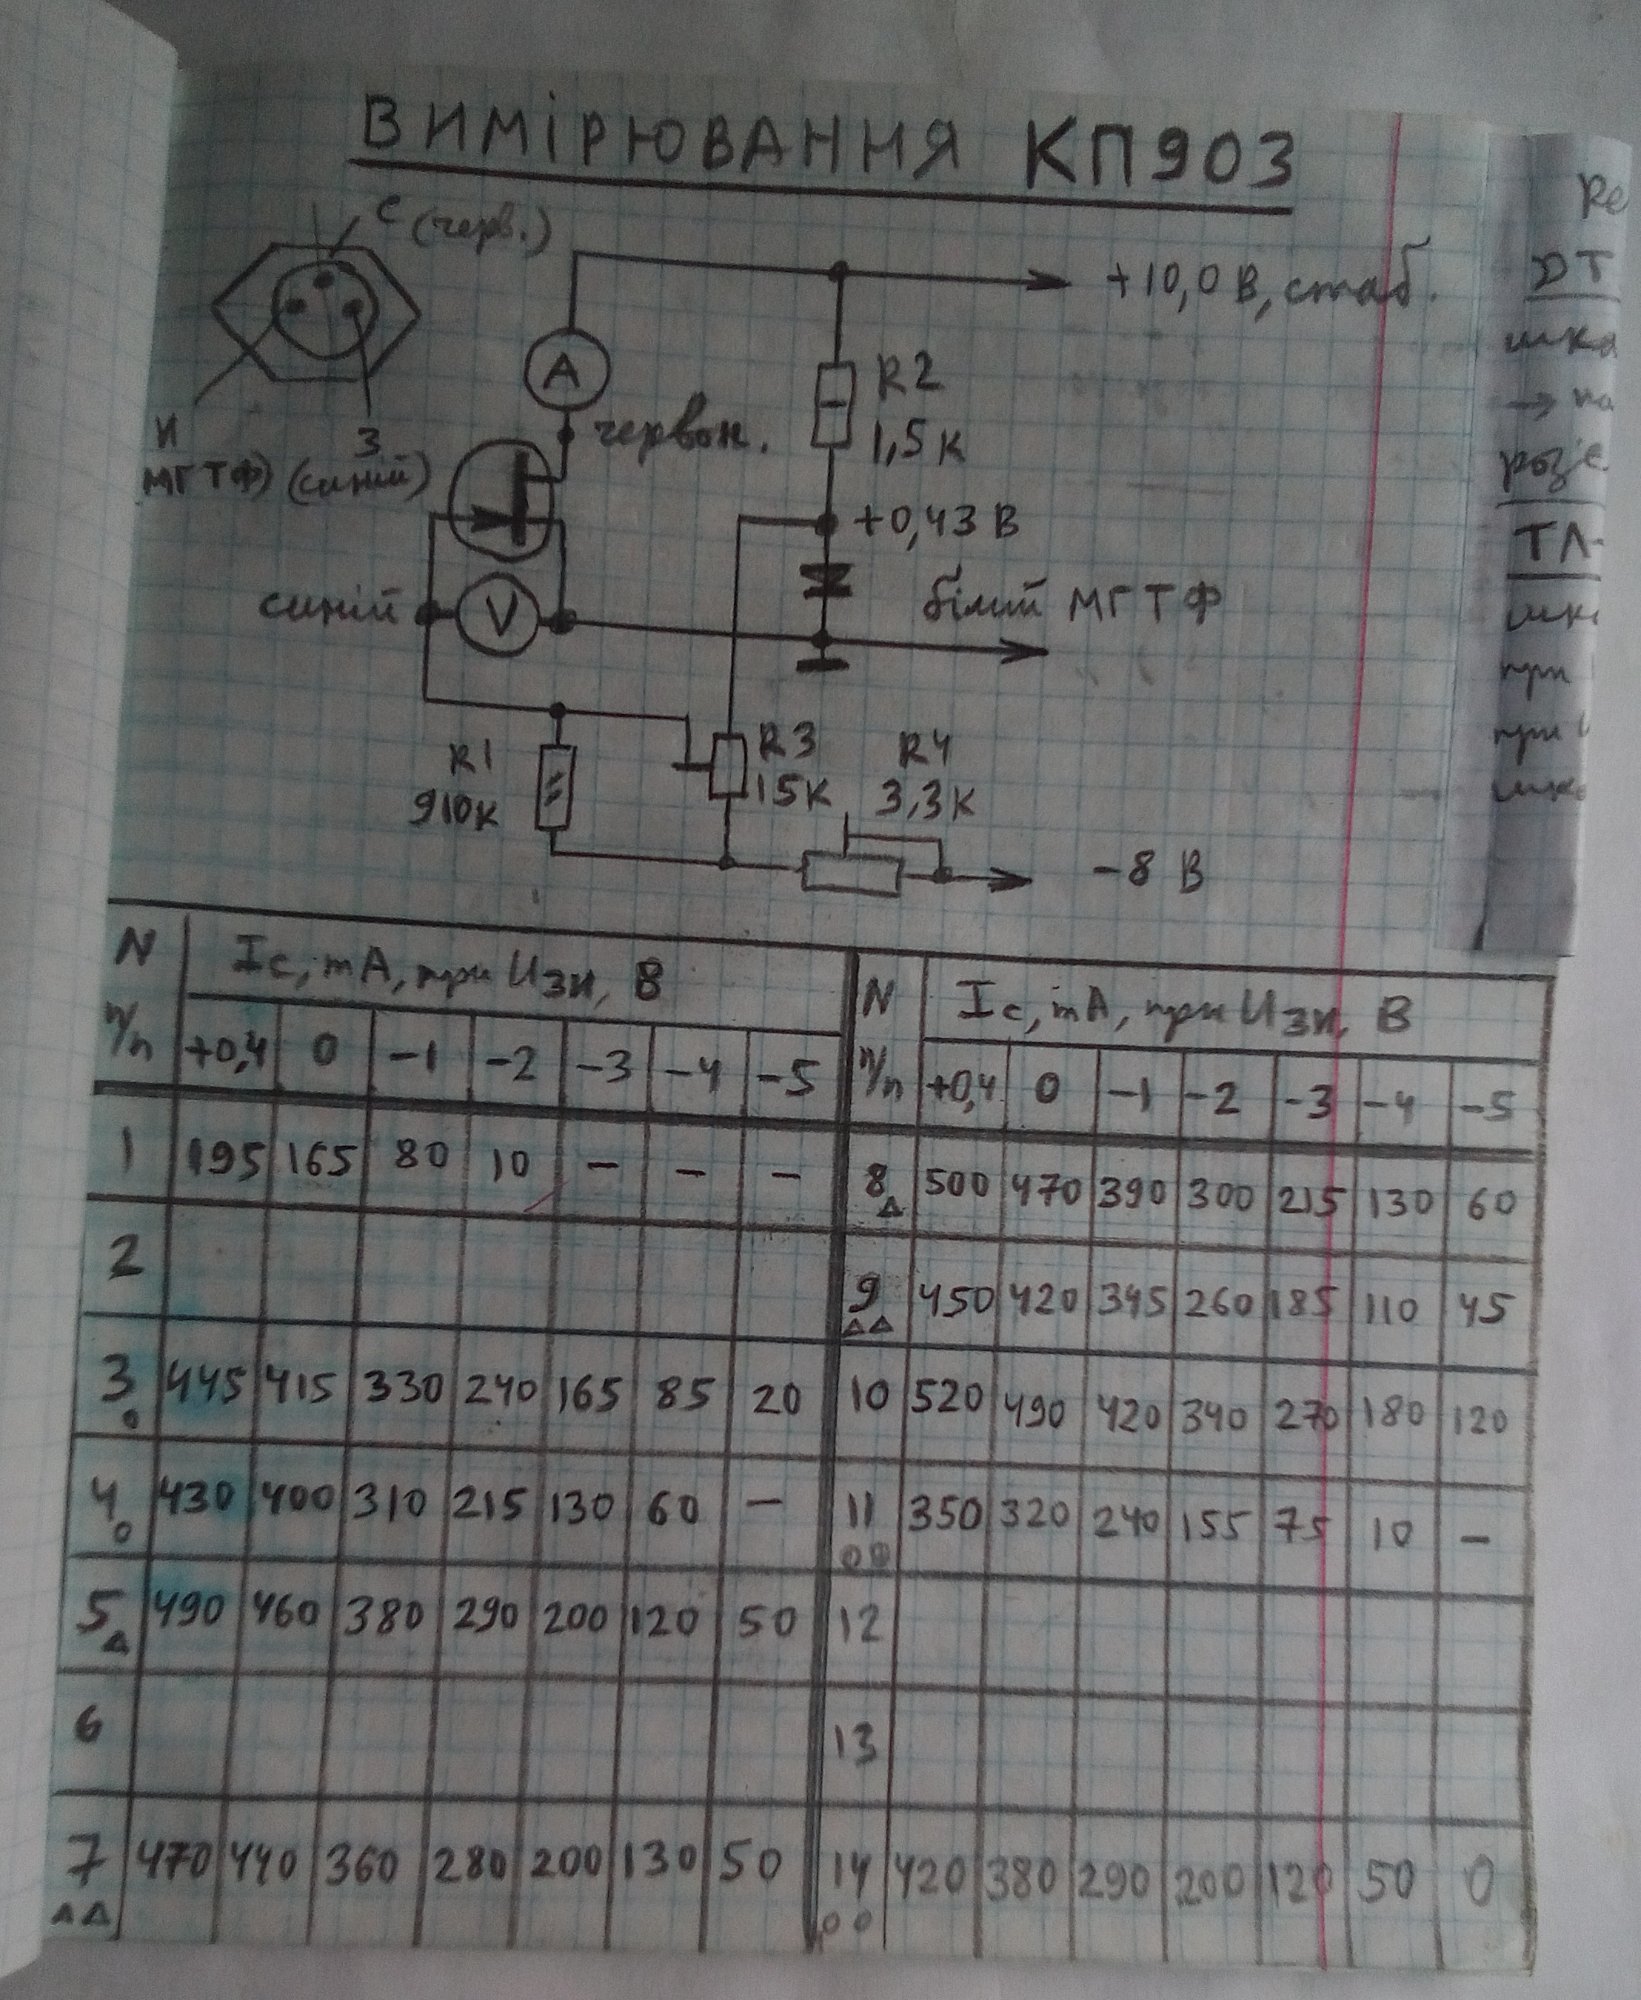 ВИМІРЮВАННЯ КП903
С (черв.)
И
МГТФ)
З
(синій)
A
червон.
+10,0 В, стаб.
R2
1,5к
+0,43 В
синій
V
білий МГТФ
R1
910к
R3
15к
R4
3,3к
-8 В
N п/п Ic, mA, при Uзи, В
+0,4 0 -1 -2 -3 -4 -5
1 195 165 80 10 - - -
2
3 445 415 330 240 165 85 20
4 430 400 310 215 130 60 -
5 490 460 380 290 200 120 50
6
7 470 440 360 280 200 130 50
N п/п Ic, mA, при Uзи, В
+0,4 0 -1 -2 -3 -4 -5
8 500 470 390 300 215 130 60
9 450 420 345 260 185 110 45
10 520 490 420 340 270 180 120
11 350 320 240 155 75 10 -
12
13
14 420 380 290 200 120 50 0